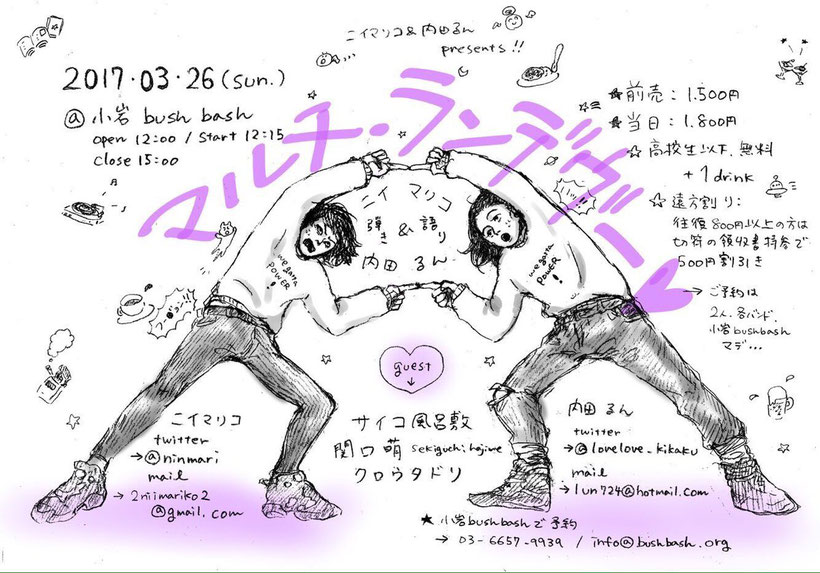 ニイマリコ&内田るん
presents!!
2017・03・26(sun.)
@小岩 bush bash
open 12:00 / start 12:15
close 15:00
マルチ・ランデヴー
★前売：1.500円
★当日：1.800円
☆高校生以下、無料
+1drink
☆遠方割り：
往復800円以上の方は
切符の領収書持参で
500円割引き
→ご予約は
2人、各バンド、
小岩bushbash
マデ…
ニイ マリコ
弾き&語り
内田 るん
we gatta
POWER!
we gatta
POWER!
guest
↓
サイコ風呂敷
関口萌 sekiguchi.hajime
クロウタドリ
ニイマリコ
twitter
→@ninmari
mail
→2niimariko2
@gmail.com
内田 るん
twitter
→@lovelove_kikaku
mail
→lun724@hotmail.com
★小岩bushbashで予約
→03-6657-9939 / info@bushbash.org